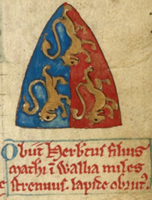 Obiit Herbertus filius
mathi ī Wallia miles
strenuus. lapsꝰ obiit.